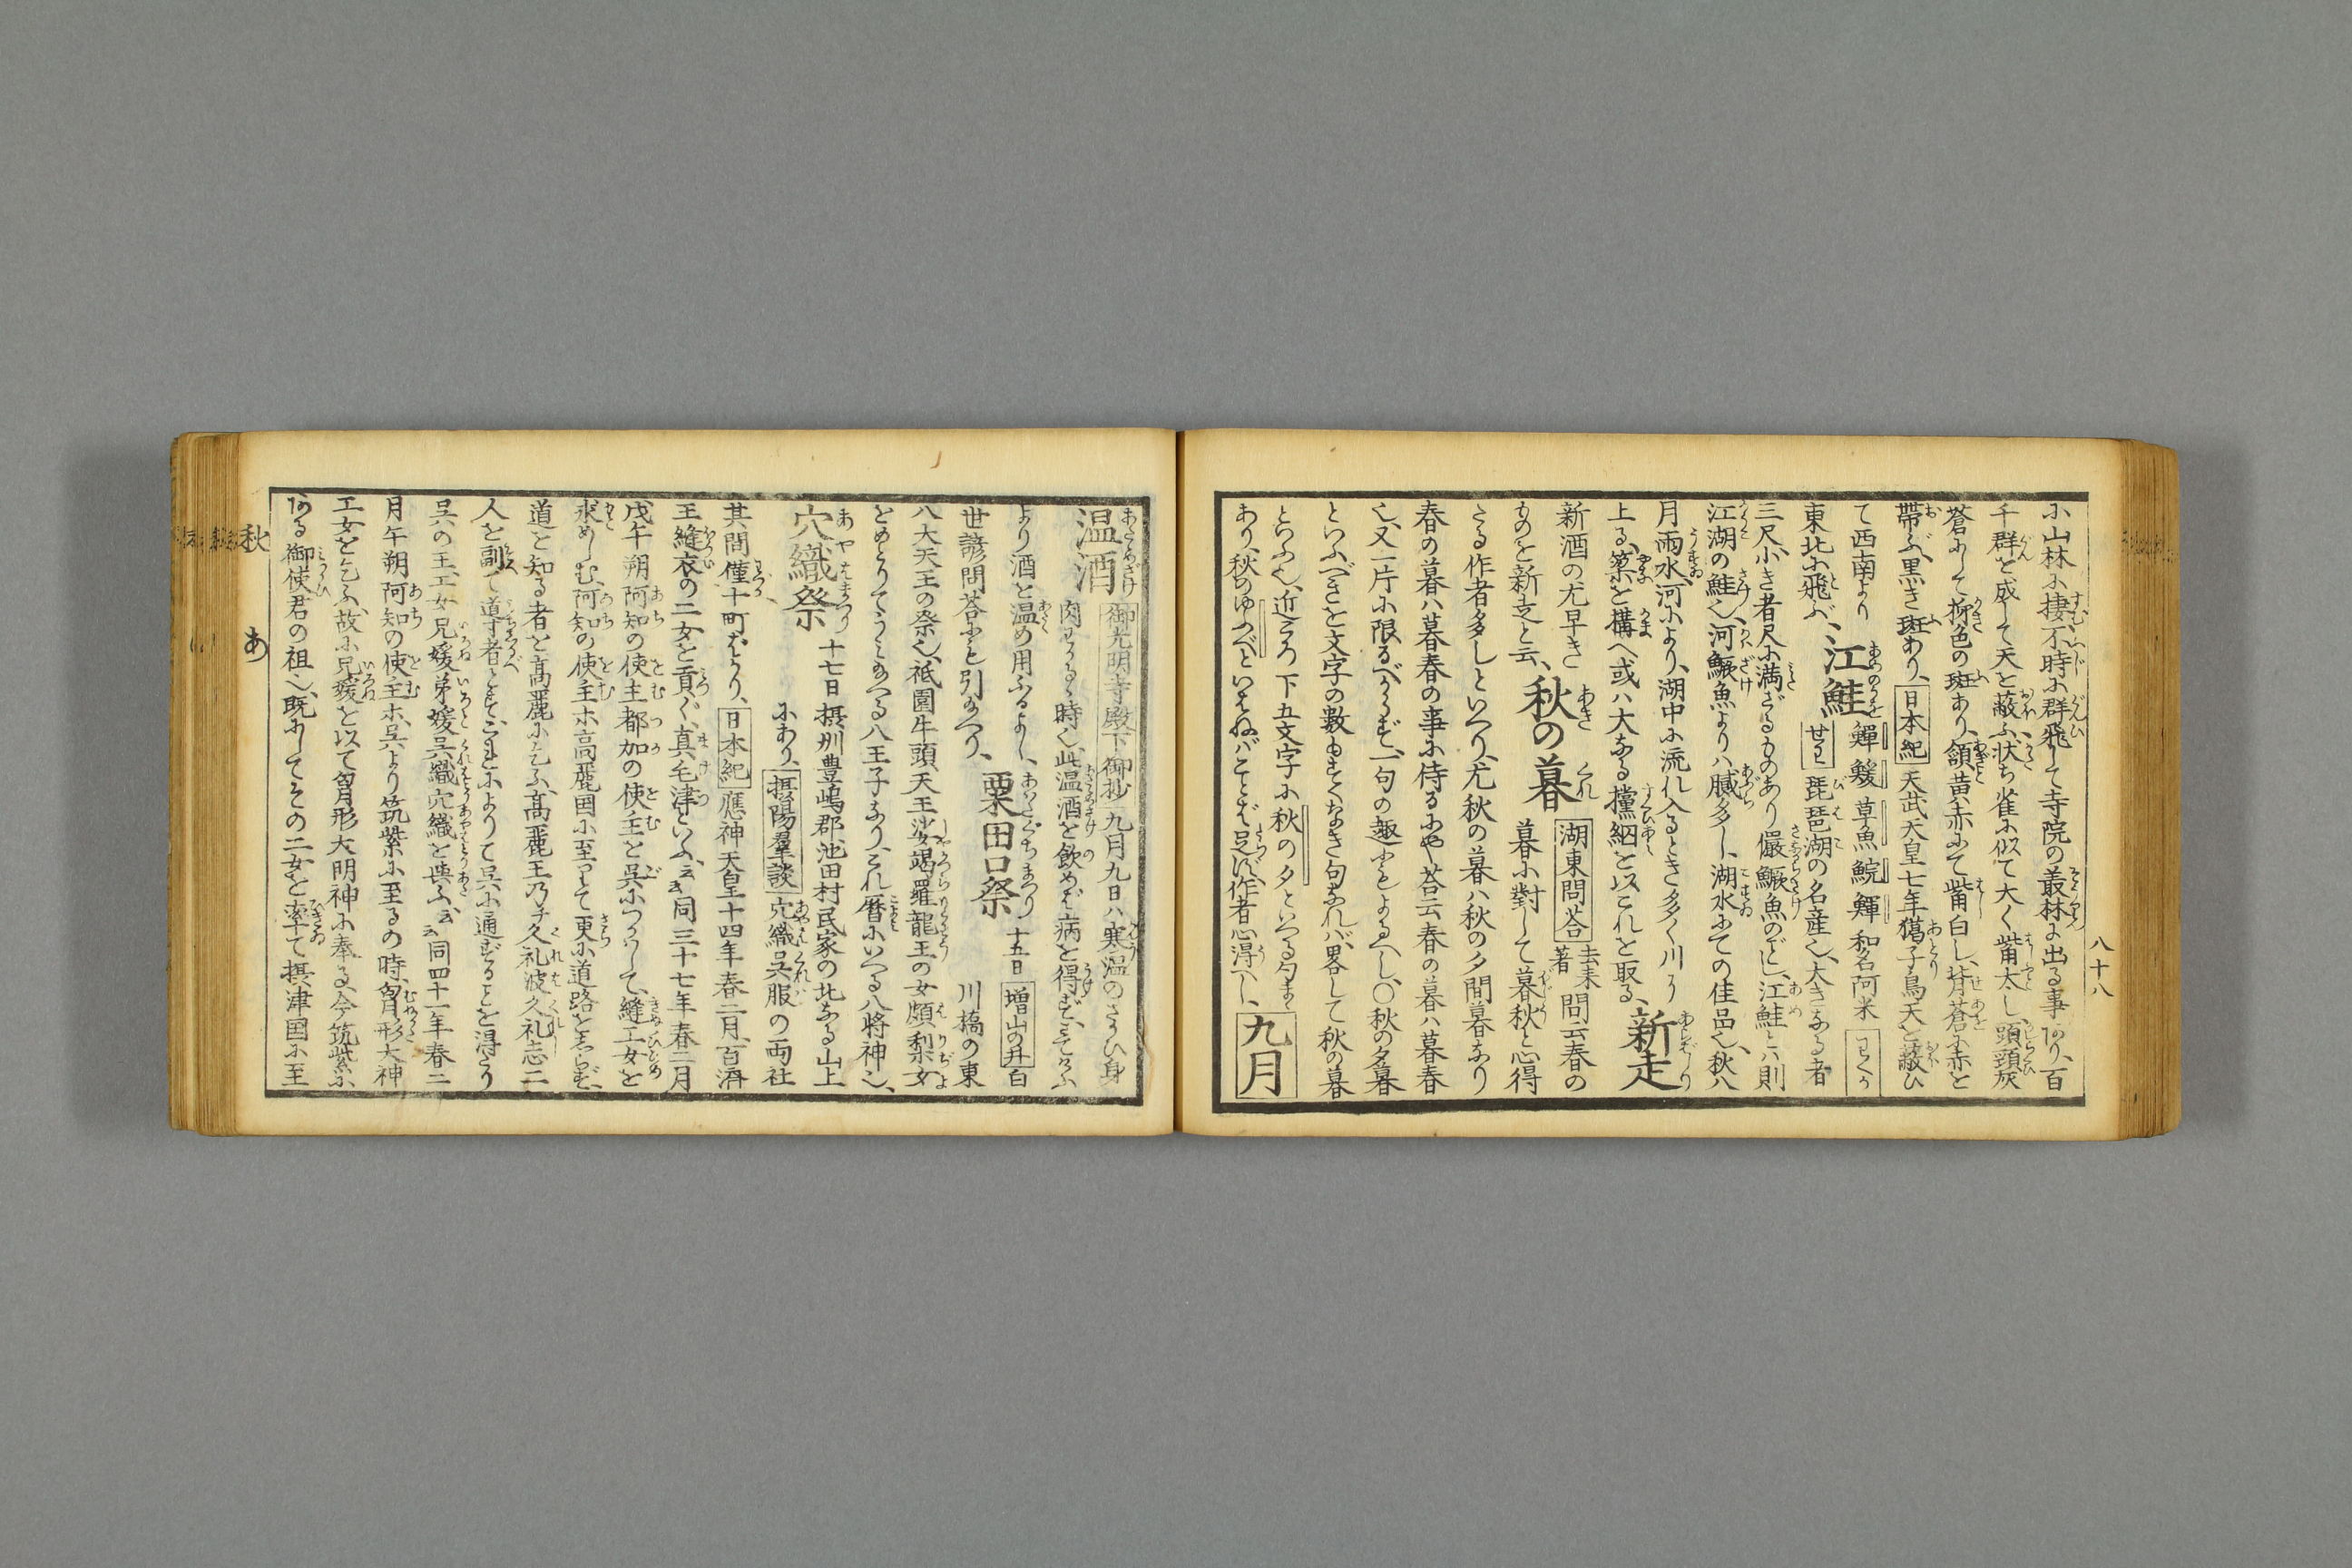 八十八
に山林に棲不時に群飛して寺院の叢林より出る事あり、百
千群と成して天を蔽ふ、状ち雀に似て大く觜太し、頭頸灰
蒼にして柳色の斑あり、頷黄赤にて觜白し、背蒼に赤を
帯ぶ、黒き斑あり、日本紀天武天皇七年﨟子鳥天を蔽ひ
て西南より
東北に飛ぶ、
江鮭
鱓 鰀 草魚 鯇 鯶 和名阿米
琵琶湖の名産也、大きなる者
三尺、小き者尺に満ざるものあり儼鱖魚のごし、江鮭とハ則
江湖の鮭也、河鱖魚よりハ膩多し、湖水にての佳品也、秋八
月雨水、河により、湖中に流れ入るとき多く川に
上る、簗を構へ或ハ大なる攩網を以これを取る、
新走
新酒の尤早き
ものを新走と云、
秋の暮
湖東問荅 去来著 問云春の
暮に對して暮秋と心得
たる作者多しといへり、尤秋の暮ハ秋の夕間暮なり
春の暮ハ暮春の事に侍るにや、荅云春の暮ハ暮春
也、又一片に限るべからず、一句の趣にもよるへし、○秋の夕暮
といふべきを文字の數由もてなき句なれバ、畧して秋の暮
といふ也、近ころ下五文字に秋の夕といへる句まま
あり、秋のゆふべといはねバことば足ず、作者心得へし、
九月
温酒
御光明寺殿下御抄九月九日ハ寒温のさかひ身
肉わかるゝ時也、此温酒を飲めば病を得ず、ミてらふ
より酒を温め用ふるよし、
世諺問荅にも引おへり、
粟田口祭
十五日 増山の井白
川橋の東
八大天王の祭也、祇園牛頭天王娑竭羅龍王の女頗梨女
をめとりてうミおへる八王子なり、これ暦にいへる八将神也、
穴織祭
十七日 摂州豊嶋郡池田村民家の北なる山上
にあり、摂陽羣談穴織呉服の両社
其間僅十町ばかり、日本紀應神天皇十四年春二月、百済
王縫衣の工女を貢ぐ、真毛津といふ、云云同三十七年春二月
戊午朔阿知の使主都加の使主を呉につかハして、縫工女を
求めしむ、阿知の使主ホ高麗国に至りて更に道路をしらず、
道を知る者を高麗に乞ふ、高麗王乃チ久礼波久礼志二
人を副て導者とす、これによりて呉に通ずることを得たり
呉の王工女兄媛弟媛呉織穴織を與ふ、云云同四十一年春二
月午朔阿知の使主ホ、呉より筑紫に至るの時、胷形大神
工女を乞ふ、故に兄媛を以て胷形大明神に奉る、今筑紫に
ある御使君の祖也、既にしてその二女を率て摂津国に至
秋
あ